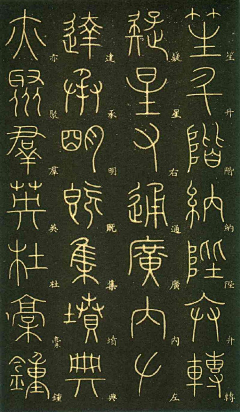 笙升階納陛弁轉
疑星右通廣內左
達承明既集墳典
亦聚羣英杜稾鍾